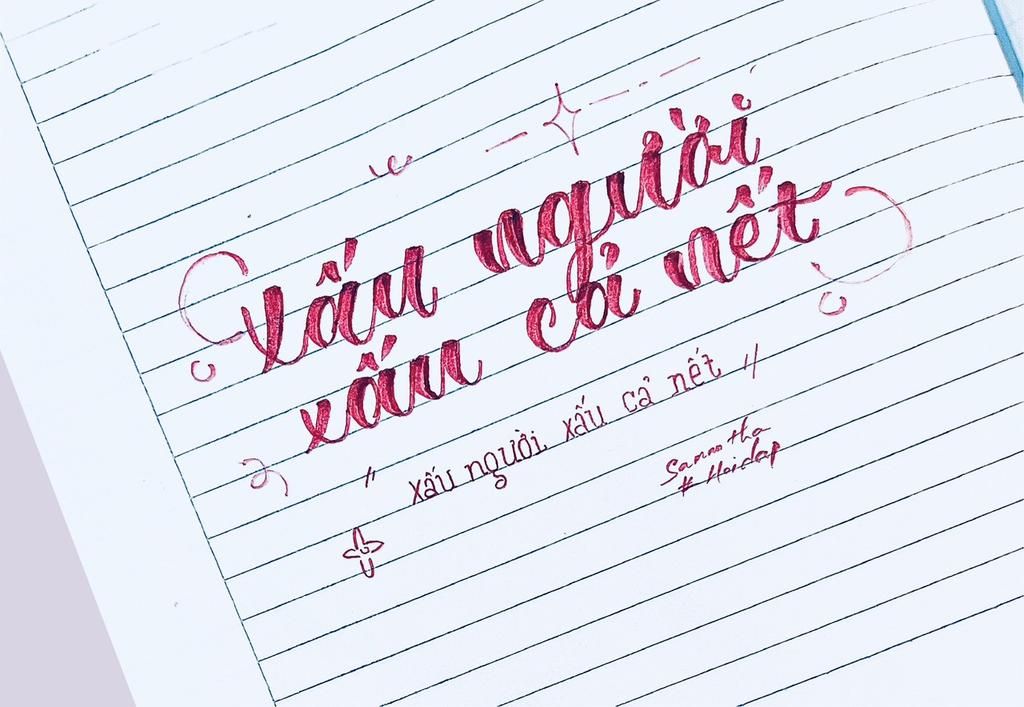 xấu người
xấu cả nết
" xấu người, xấu cả nết "
Samantha
# Hoidap